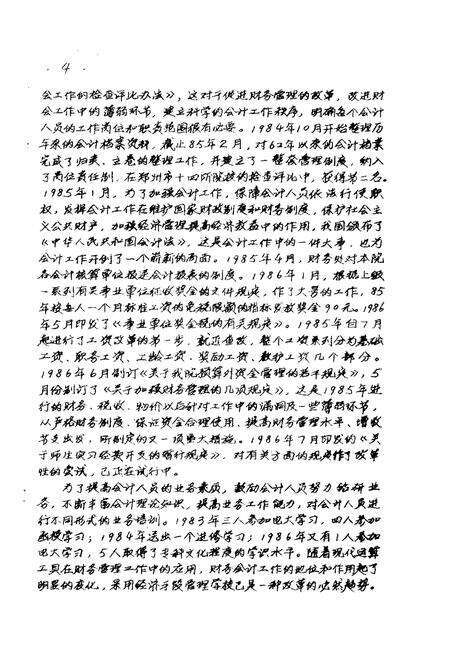 · 4 ·
会工作的检查评比办法》，这对于促进财务管理的改革，改进财
会工作中的薄弱环节，建立科学的会计工作秩序，明确每个会计
人员的工作岗位和职责范围很有必要。1984年10月开始整理历
年来的会计档案资料，截止85年2月，对62年以来的会计档案
完成了归类、立卷的整理工作，并建立了一整套管理制度，纳入
了岗位责任制，在郑州市十四所院校的检查评比中，获得第二名。
1985年1月，为了加强会计工作，保障会计人员依法行使职
权，发挥会计工作在维护国家财政制度和财务制度，保护社会主
义公共财产，加强经济管理提高经济效益中的作用，我国颁布了
《中华人民共和国会计法》，这是会计工作中的一件大事，也为
会计工作开创了一个崭新的局面。1985年4月，财务处对本院
各会计核算单位报送会计报表的制度。1986年1月，根据上级
一系列有关事业单位征收奖金的文件规定，作了大量的工作，85
年按每人一个月标准工资的免税限额的指标发放奖金90元。1986
年5月印发了《事业单位奖金税的有关规定》。1985年自7月
起进行了工资改革的第一步，就近套改，整个工资系列分为基础
工资、职务工资、工龄工资、奖励工资、教护工资几个部分。
1986年6月制订《关于我院预算外资金管理的若干规定》，5
月份制订了《关于加强财务管理的几项规定》，这是1985年进
行的财务、税收、物价以后针对工作中的漏洞及一些薄弱环节，
从严格财务制度，保证资金合理使用，提高财务管理水平、增收
节支出发，所制定的又一项重大措施。1986年7月印发的《关
于师生实习经费开支的暂行规定》，对有关方面的规定作了改革
性的尝试，已正在试行中。
为了提高会计人员的业务素质，鼓励会计人员努力钻研业
务，不断丰富会计理论知识，提高业务工作能力，对会计人员进
行不同形式的业务培训。1983年三人参加电大学习，四人参加
函授学习；1984年送出一个进修学习；1986年又有1人参加
电大学习，5人取得了专科文化程度的学识水平。随着现代运算
工具在财务管理工作中的应用，财务会计工作的地位和作用起了
明显的变化，采用经济手段管理学校已是一种改革的必然趋势。